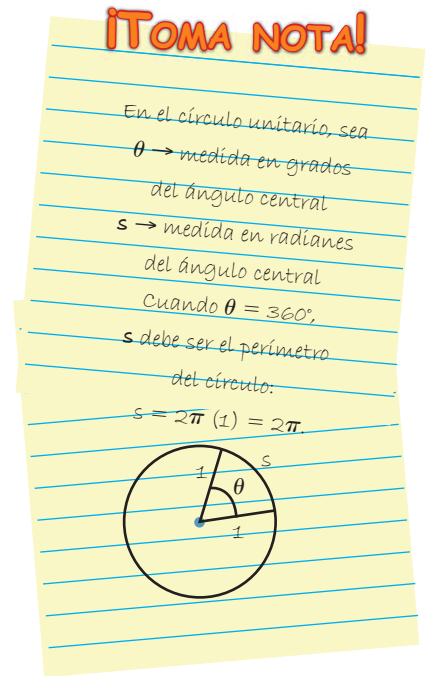 ¡TOMA NOTA!
En el círculo unitario, sea
θ → medida en grados
del ángulo central
s → medida en radianes
del ángulo central
Cuando θ = 360°,
s debe ser el perímetro
del círculo:
s = 2π (1) = 2π.
1
s
θ
1